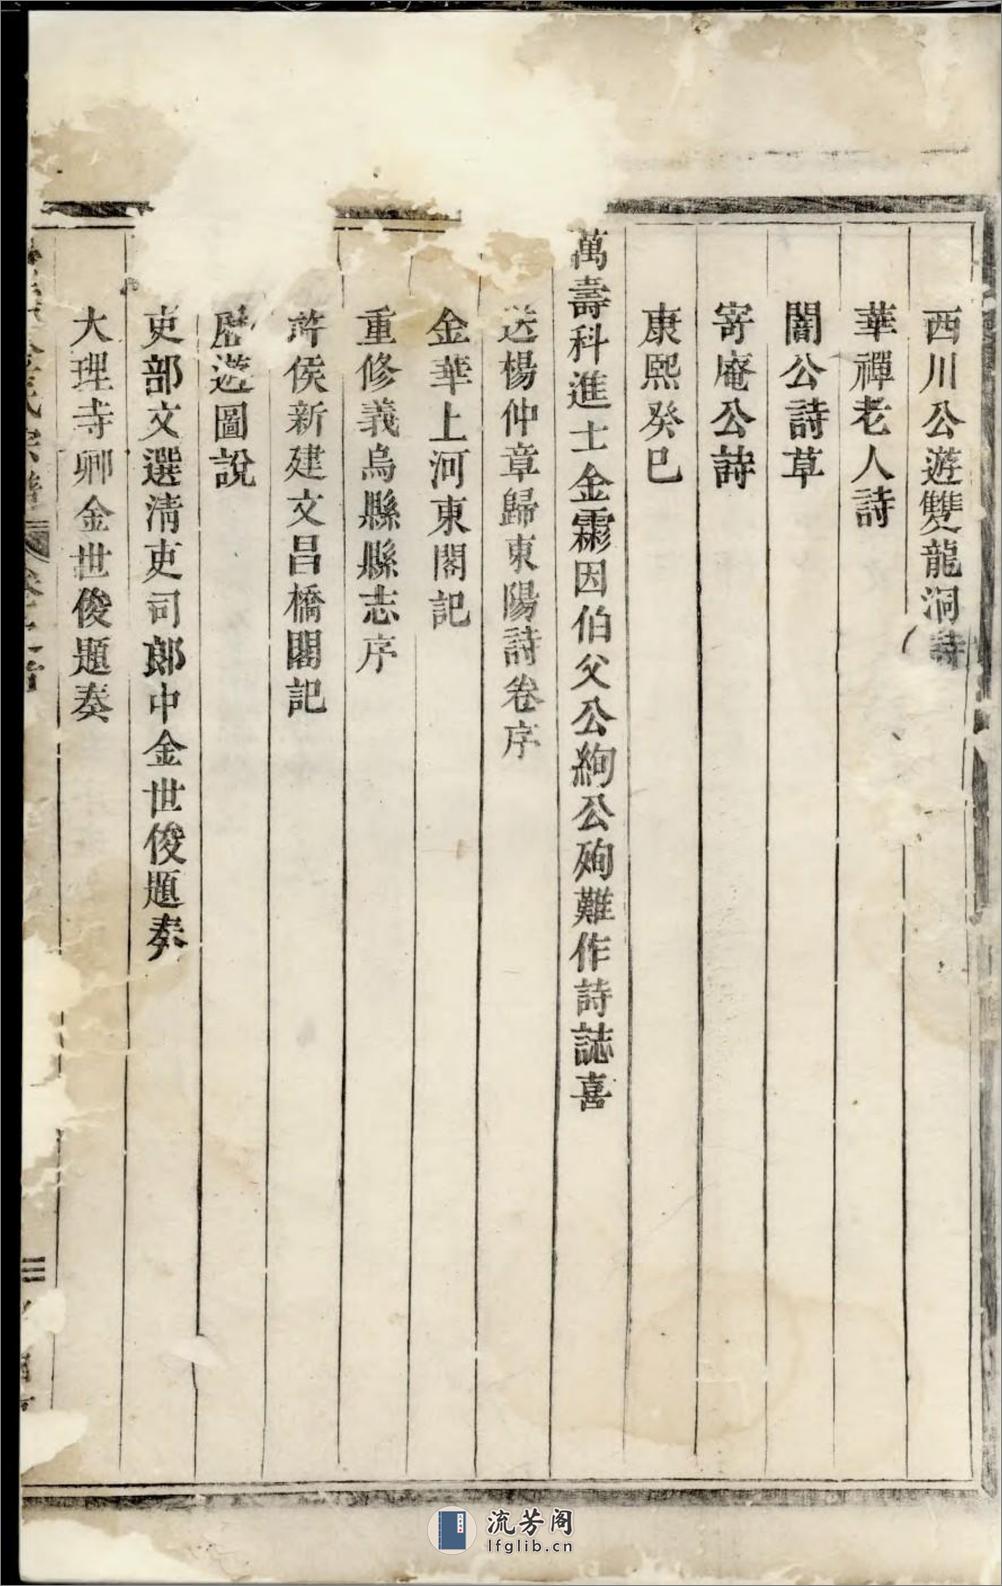 西川公遊雙龍洞詩
華禪老人詩
闇公詩草
寄庵公詩
康熙癸巳
萬壽科進士金霦因伯父公絢公殉難作詩誌喜
送楊仲章歸東陽詩卷序
金華上河東閣記
重修義烏縣縣志序
許侯新建文昌橋閣記
歷遊圖說
吏部文選清吏司郎中金世俊題奏
大理寺卿金世俊題奏
氏宗譜
流芳阁
lfglib.cn